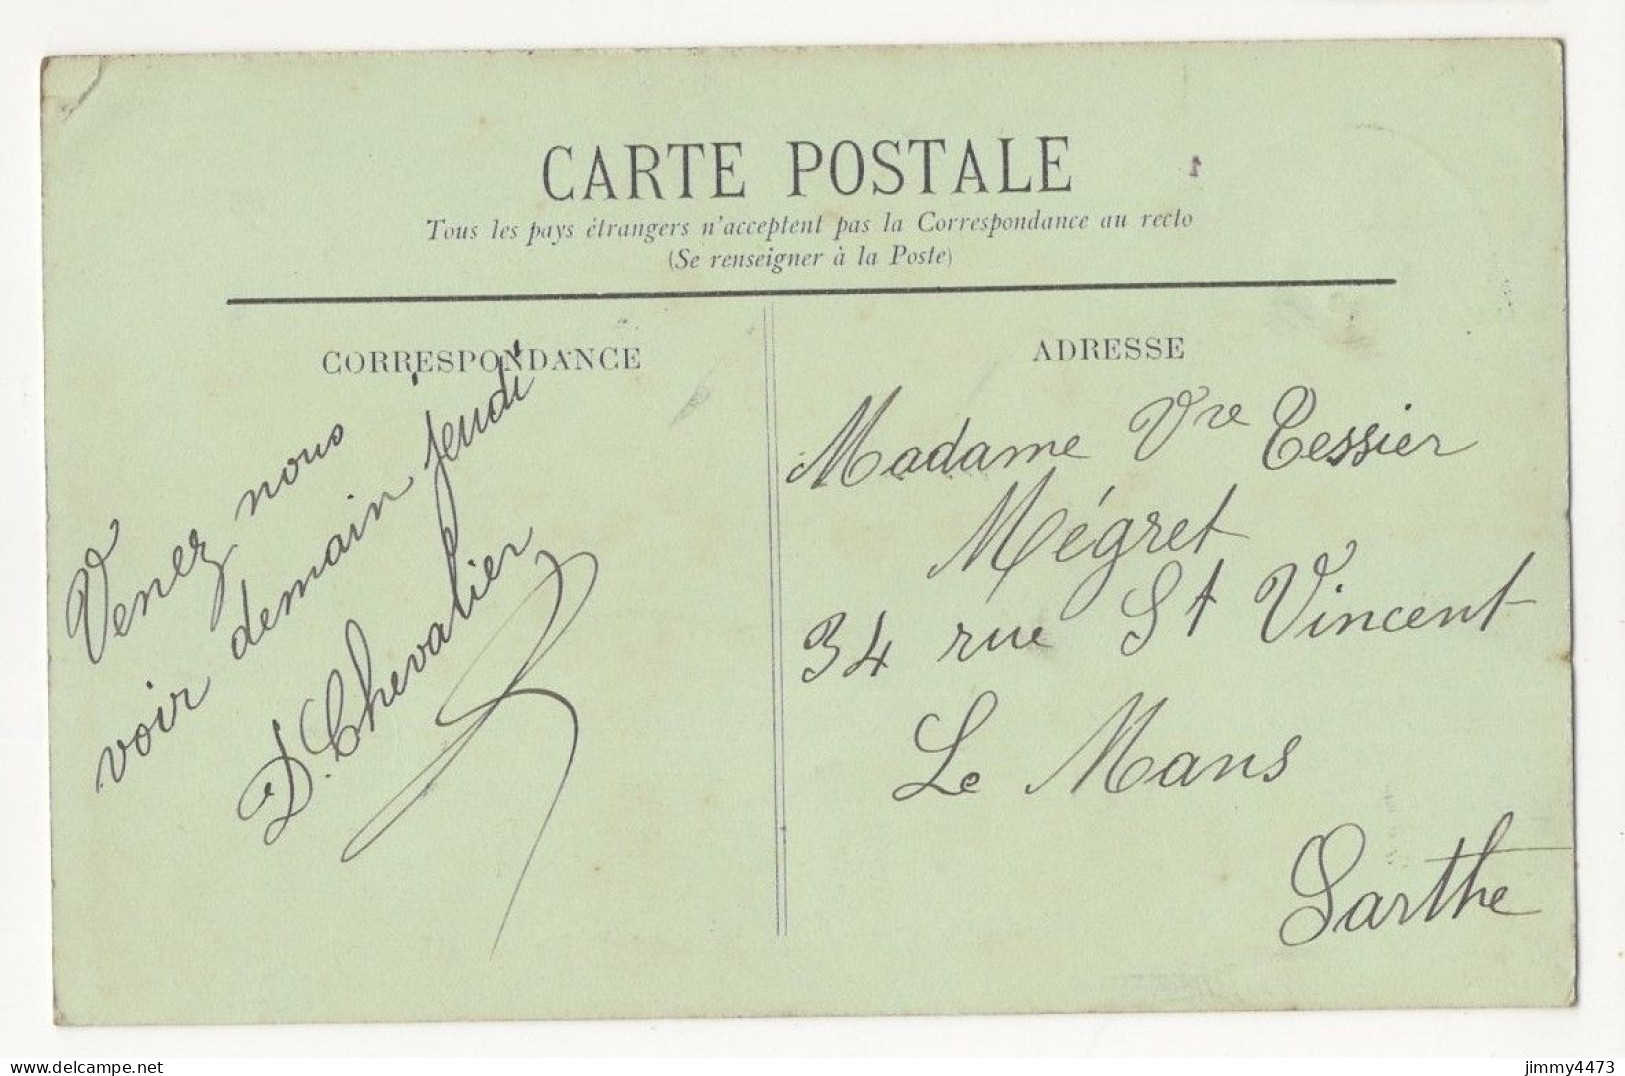 CARTE POSTALE
1
Tous les pays étrangers n'acceptent pas la Correspondance au recto
(Se renseigner à la Poste)
CORRESPONDANCE
Venez nous
voir demain jeudi
D. Chevalier
ADRESSE
Madame Vve Tessier
Mégret
34 rue St Vincent
Le Mans
Sarthe
jimmy4473